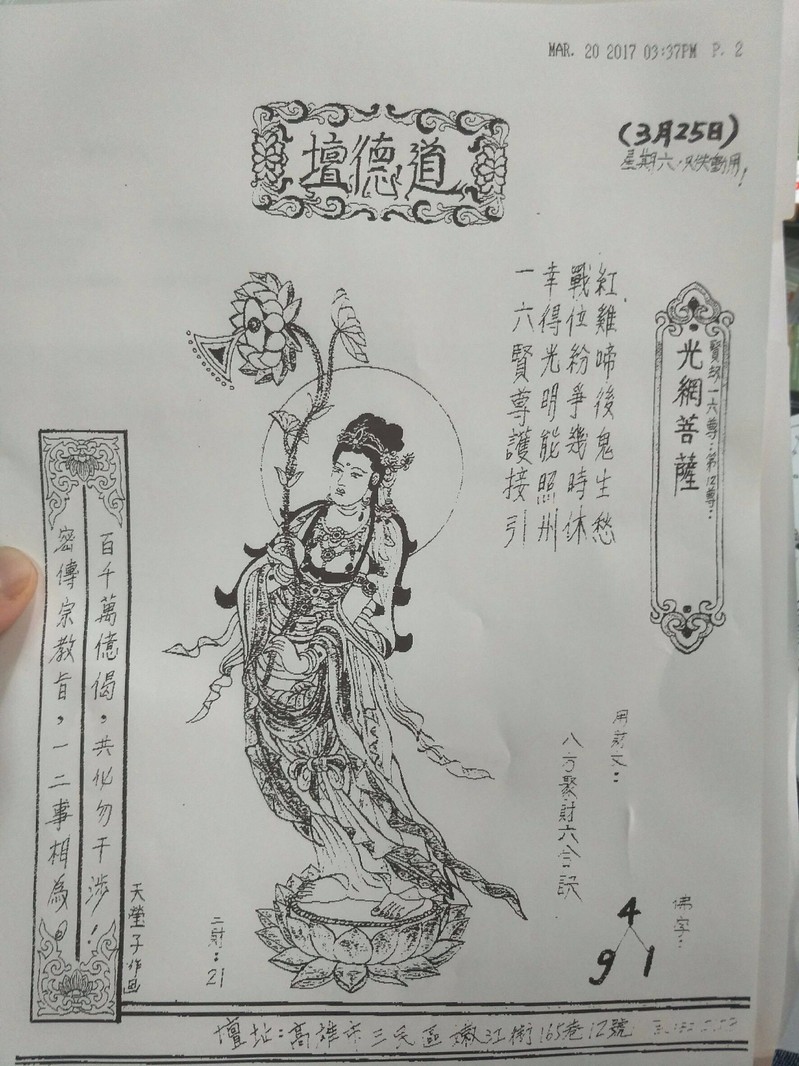 MAR. 20 2017 03:37PM P. 2
道德壇
(3月25日)
星期六
光網菩薩
紅雞啼後鬼生愁
戰位紛爭幾時休
幸得光明能照州
一六賢尊護接引
八方聚財六合訣
佛字：
4
9 1
二財：21
百千萬億偈，共化勿干涉！
密傳宗教旨，一二事相為。
天瑩子作画
壇址：高雄市三民區嫩江街165巷12號